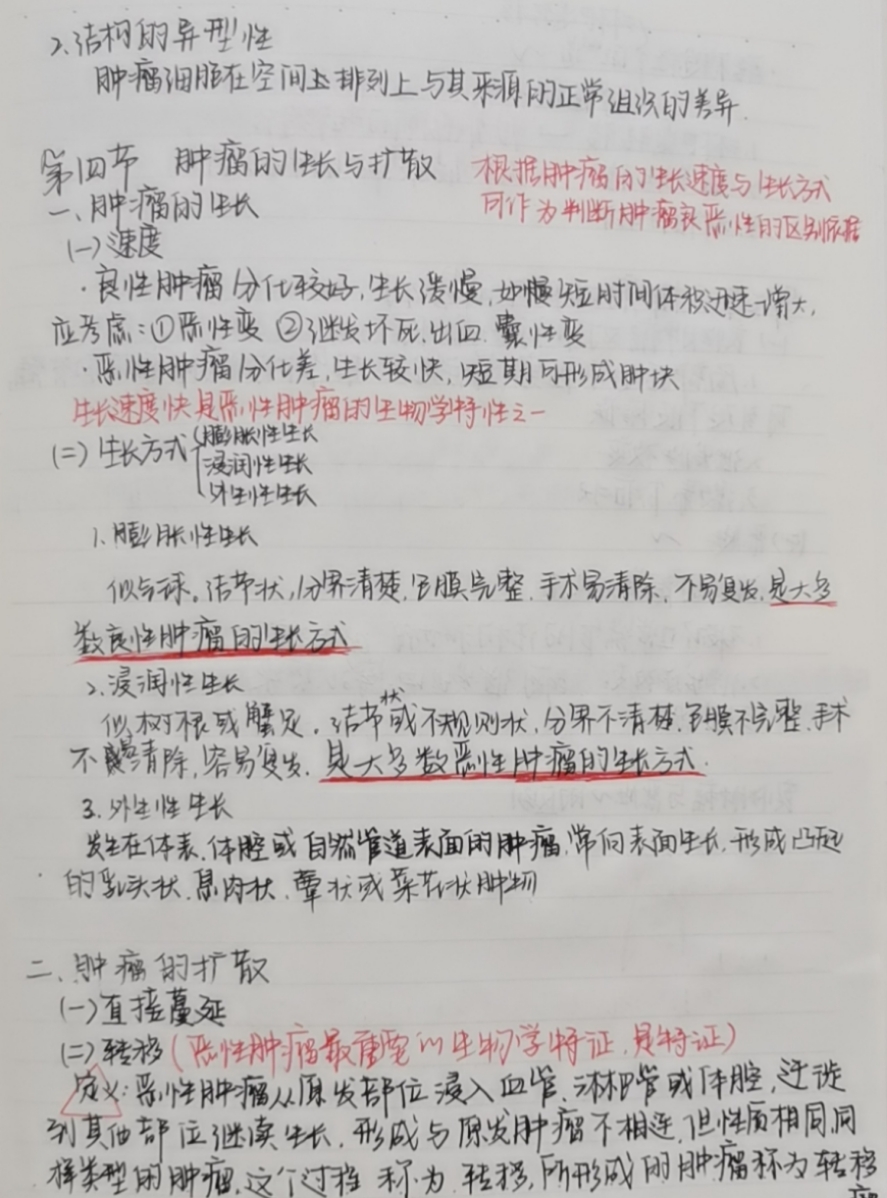 2.结构的异型性
肿瘤细胞在空间上排列上与其来源的正常组织的差异.
第四节 肿瘤的生长与扩散
根据肿瘤的生长速度与生长方式
可作为判断肿瘤良恶性的区别依据
一、肿瘤的生长
(一)速度
·良性肿瘤分化较好,生长缓慢,如短时间体积迅速增大,
应考虑:①恶性变 ②继发坏死.出血.囊性变
·恶性肿瘤分化差,生长较快,短期可形成肿块
生长速度快是恶性肿瘤的生物学特性之一
(二)生长方式{膨胀性生长
浸润性生长
外生性生长
1.膨胀性生长
似气球。结节状,分界清楚,包膜完整.手术易清除,不易复发,是大多
数良性肿瘤的生长方式
2.浸润性生长
似树根或蟹足,结节状或不规则状,分界不清楚.包膜不完整.手术
不易清除,容易复发.是大多数恶性肿瘤的生长方式.
3.外生性生长
发生在体表.体腔或自然管道表面的肿瘤,常向表面生长,形成凸起
的乳头状.息肉状.蕈状或菜花状肿物
二、肿瘤的扩散
(一)直接蔓延
(二)转移(恶性肿瘤最重要的生物学特证,是特证)
定义:恶性肿瘤从原发部位浸入血管.淋杷管或体腔,迁徙
到其他部位继续生长,形成与原发肿瘤不相连,但性质相同,同
样类型的肿瘤,这个过程称为转移,所形成的肿瘤称为转移